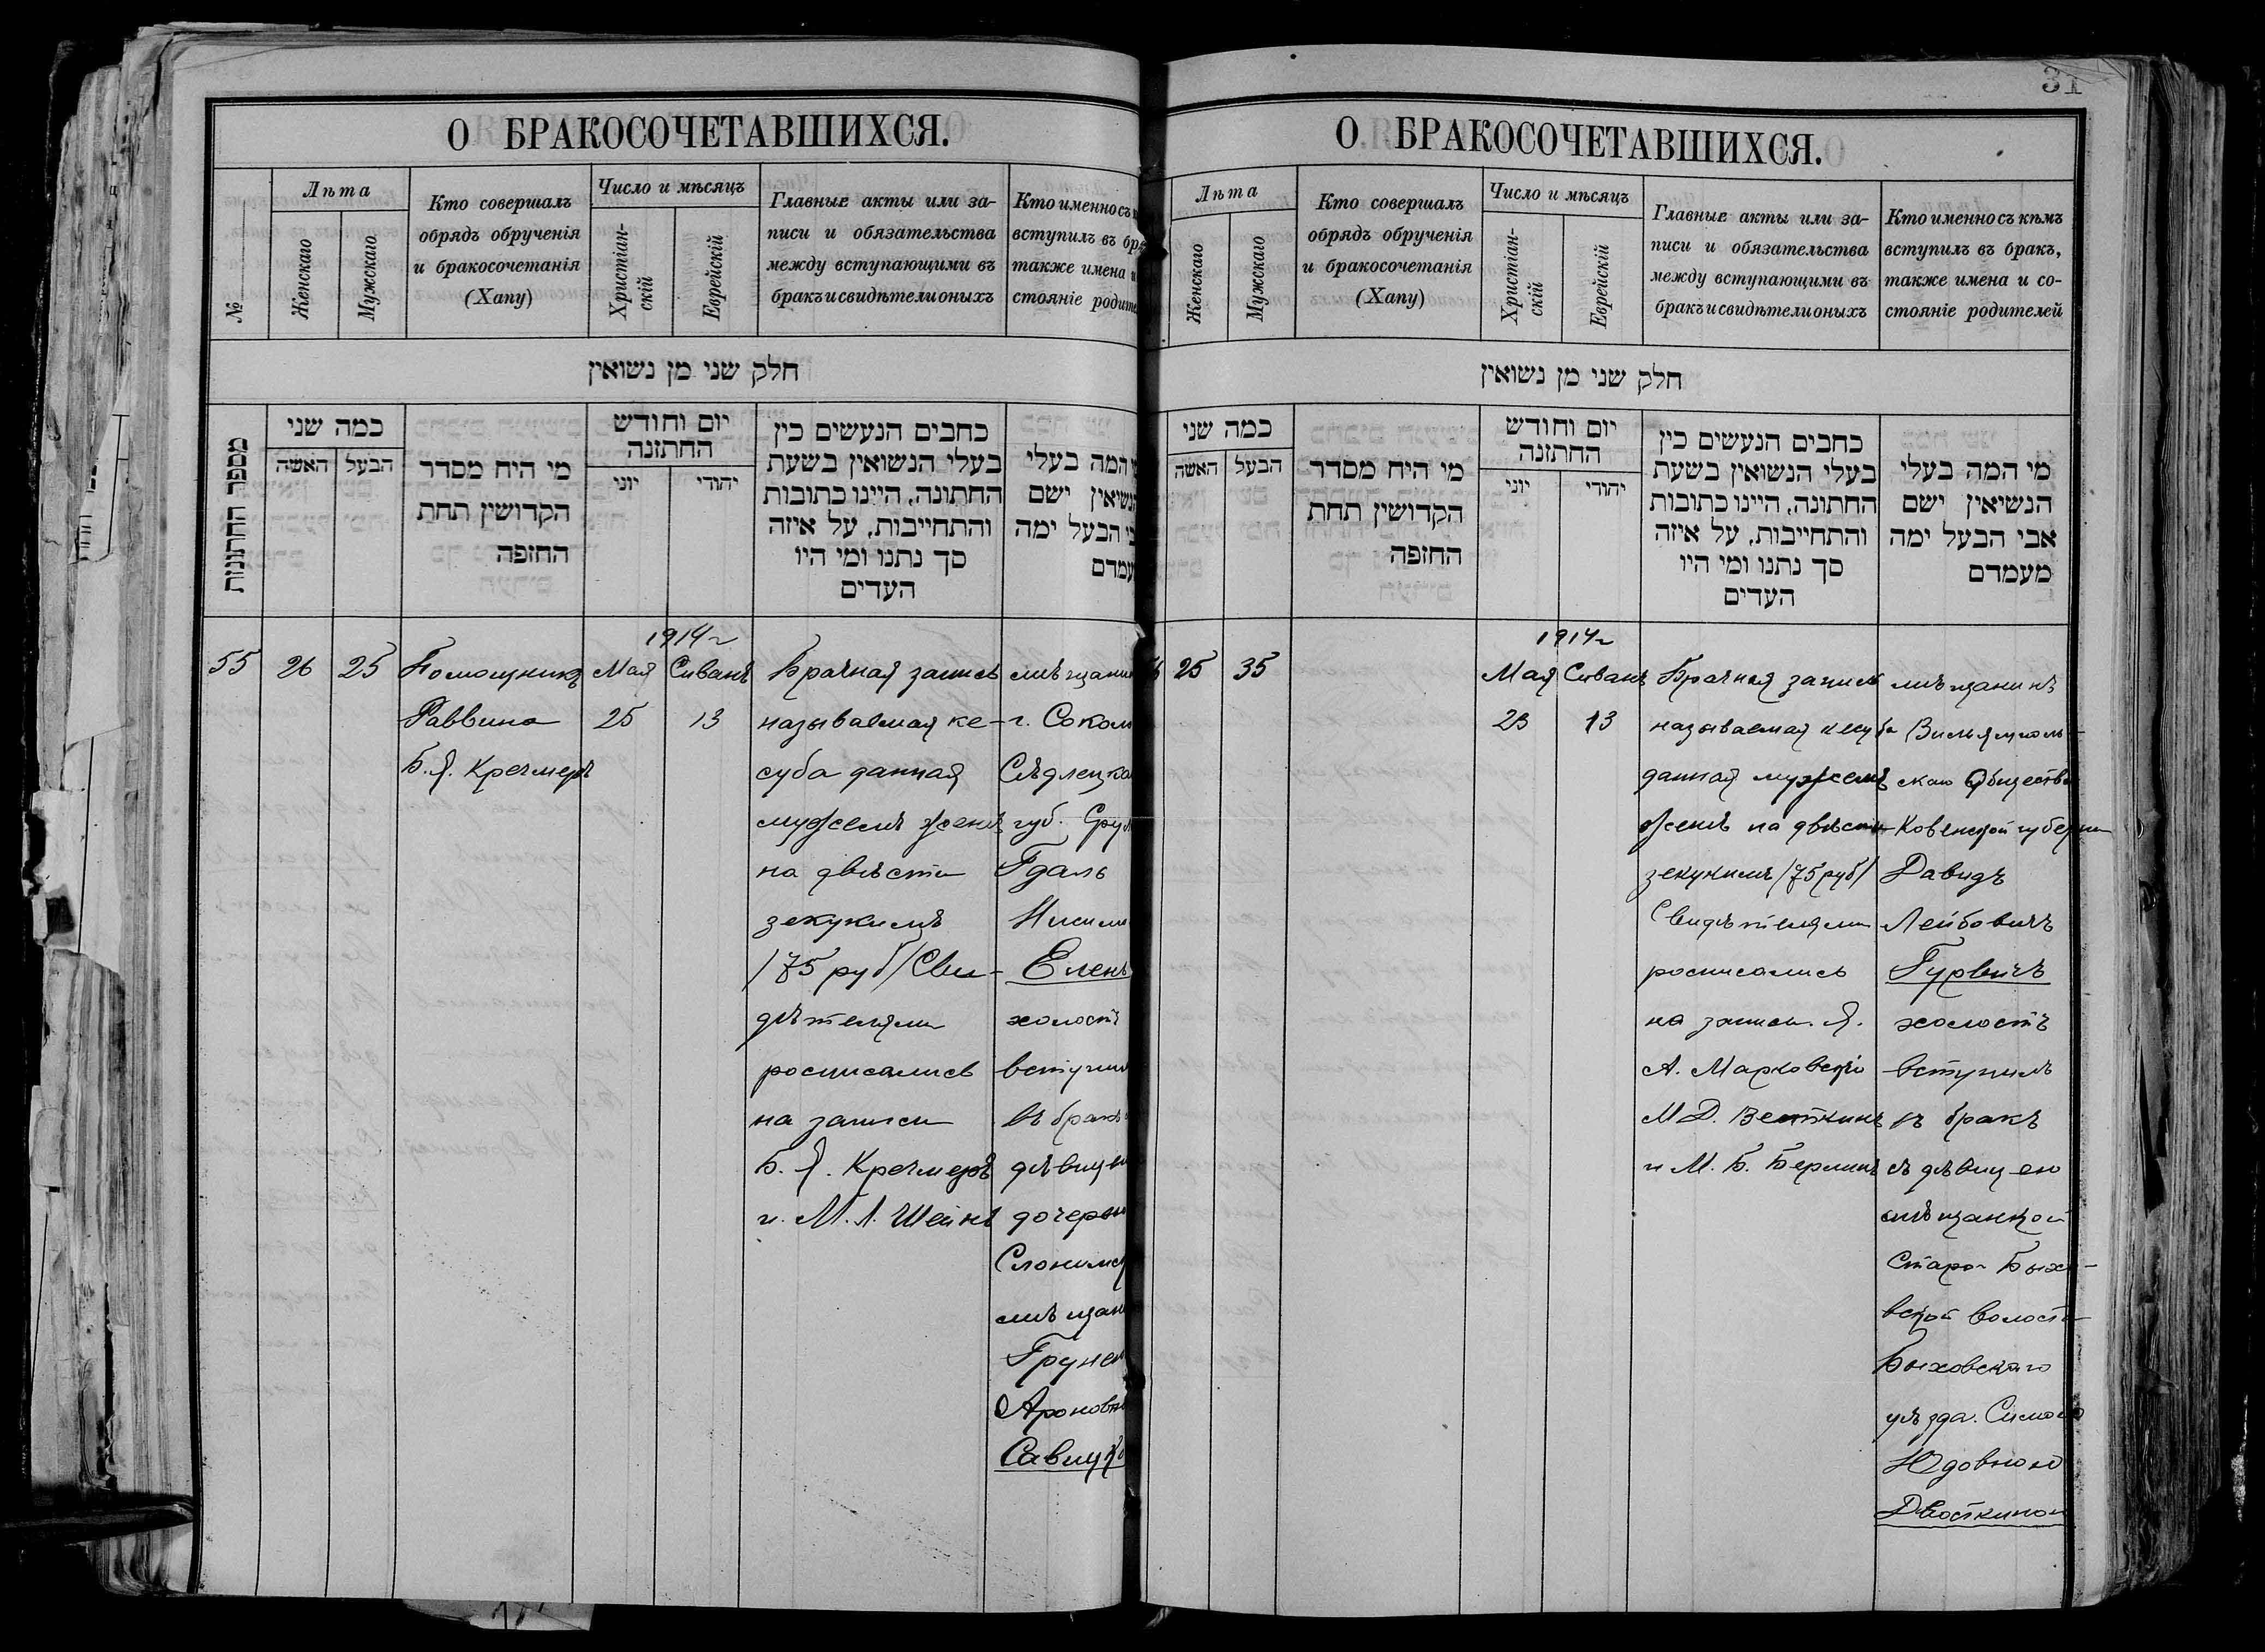 31
О БРАКОСОЧЕТАВШИХСЯ.
№
Лѣта
Женскаго
Мужскаго
Кто совершалъ
обрядъ обрученія
и бракосочетанія
(Хапу)
Число и мѣсяцъ
Христіан-
скій
Еврейскій
Главные акты или за-
писи и обязательства
между вступающими въ
бракъ и свидѣтели оныхъ
Кто именно съ
вступилъ въ
также имена и
стояніе
חלק שני מן נשואין
מספר החתונות
כמה שני
האשה
הבעל
מי היח מסדר
הקדושין תחת
החופה
יום וחודש
החתונה
יוני
יהודי
כחבים הנעשים כין
בעלי הנשואין בשעת
החתונה, היינו כתובות
והתחייבות, על איזה
סך נתנו ומי היו
העדים
המה בעלי
ישם
הבעל ימה
55
26
25
Помощникъ
Раввина
Б. Я. Кречмеръ
1914 г
Мая
25
Сиванъ
13
Брачная запись
называемая ке-
суба данная
мужемъ женѣ
на двѣсти
зекукимъ
/75 руб/ Сви-
дѣтелями
росписались
на записи
Б. Я. Кречмеръ
и М. Л. Шейнъ
г.
губ.
Гдаль
холостъ
въ бракъ
О БРАКОСОЧЕТАВШИХСЯ.
Лѣта
Женскаго
Мужскаго
Кто совершалъ
обрядъ обрученія
и бракосочетанія
(Хапу)
Число и мѣсяцъ
Христіан-
скій
Еврейскій
Главные акты или за-
писи и обязательства
между вступающими въ
бракъ и свидѣтели оныхъ
Кто именно съ кѣмъ
вступилъ въ бракъ,
также имена и со-
стояніе родителей
חלק שני מן נשואין
כמה שני
האשה
הבעל
מי היח מסדר
הקדושין תחת
החופה
יום וחודש
החתונה
יוני
יהודי
כחבים הנעשים כין
בעלי הנשואין בשעת
החתונה, היינו כתובות
והתחייבות, על איזה
סך נתנו ומי היו
העדים
מי המה בעלי
הנשיאין ישם
אבי הבעל ימה
מעמדם
25
35
1914 г
Мая
Сиванъ
13
Брачная запись
называемая кесуба
данная мужемъ
женѣ на двѣсти
зекукимъ /75 руб/
Свидѣтелями
росписались
на записи. Я.
А. Марковскій
М Д. Веткинъ
и М. Б. Берлинъ
мѣщанинъ
Вильямполь-
скаго Общества
Ковенской губерніи
Давидъ
Лейбовичъ
Гурвичъ
холостъ
вступилъ
въ бракъ
съ дѣвицею
мѣщанкой
Старо-Быхо-
вской волости
Быховскаго
уѣзда. Симою
Юдовною
Двоскиной